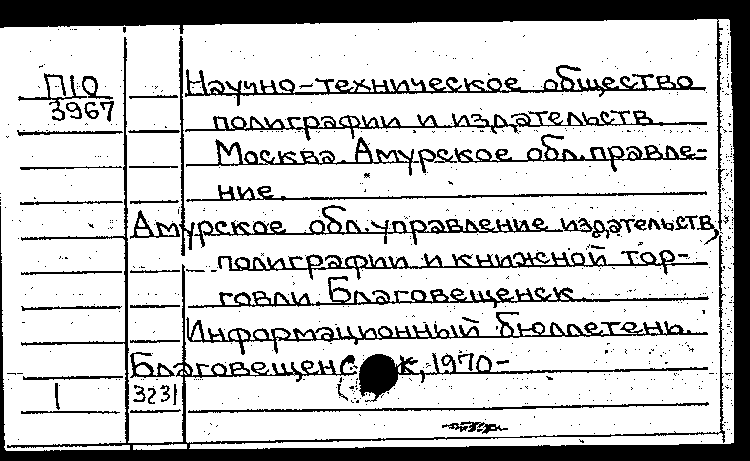 П10 Научно-техническое общество
3967
полиграфии и издательств.
Москва. Амурское обл.правле=
ние.
Амурское обл.управление издательств,
полиграфии и книжной тор-
говли. Благовещенск.
Информационный бюллетень.
Благовещенск, 1970-
1 3231